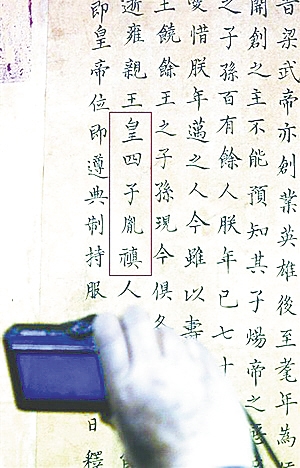 昔梁武亦創業英雄後至耄年為
開創之主不能預知其子煬帝之惡
之子孫百有餘人朕年已七十
愛惜朕年邁之人今雖以壽
王饒餘王之子孫現今俱
逝雍親王皇四子胤禛人
即皇帝位即遵典制持服日釋